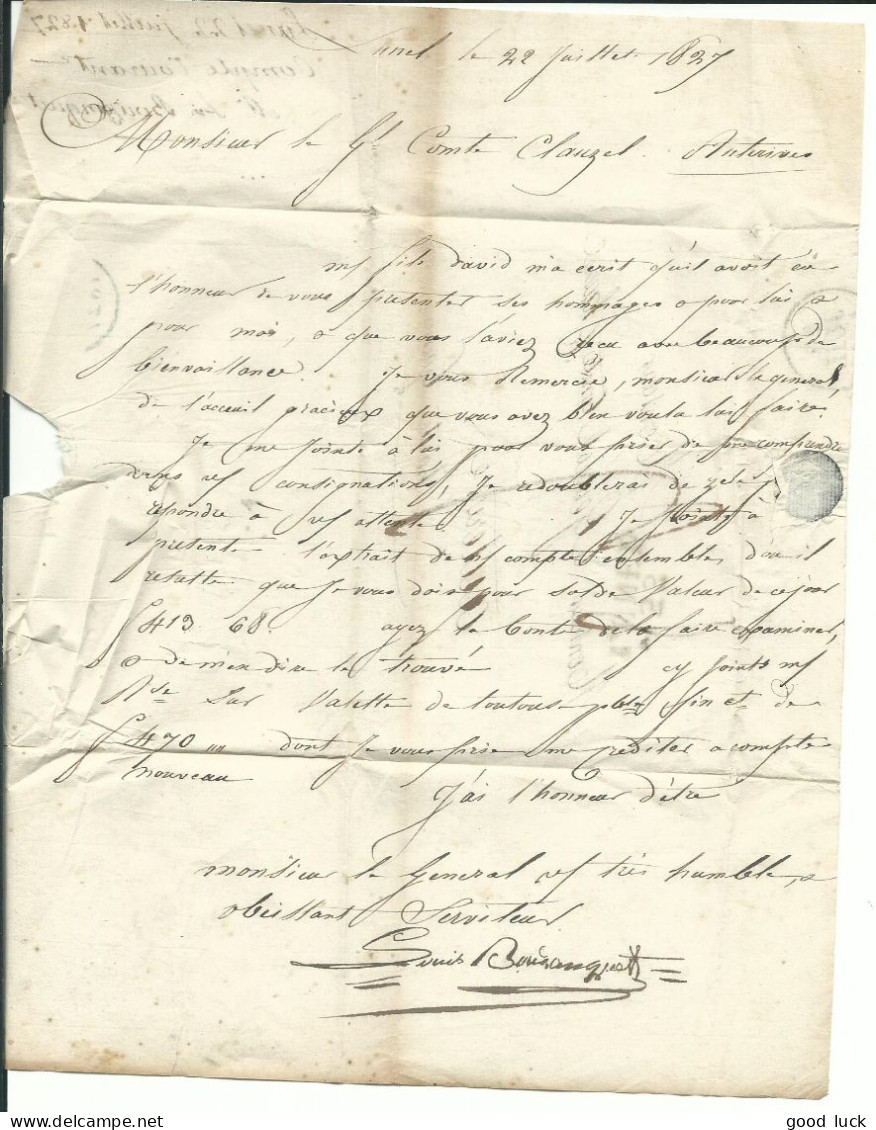 Lunel le 22 Juillet 1827
Monsieur le Gl Comte Clauzel. Auterives
mf fils david m'a ecrit qu'il avoit eu
l'honneur de vous presenter ses hommages & pour lui &
pour moi, & que vous l'aviez recu avec beaucoup de
bienvaillance. Je vous Remercie, monsieur le general,
de l'acceuil gracieux que vous avez bien voulu lui faire.
Je me joints à lui pour vous prier de me comprendre
dans vf consignations, Je redoublerai de zele p
repondre à vf attente. Je joints à
presente l'extrait de vf compte ensemble, d'ou il
resulte que Je vous dois pour solde Valeur de ce jour
f 413 68. ayez la bonté de le faire examiner,
& de m'en dire le trouvé cy joints mf
Rse Sur Valette de toulouse ple fin ct de
f 470 „„ dont Je vous prie me crediter a compte
nouveau
J'ai l'honneur d'être
monsieur le General vf très humble, &
obeissant Serviteur
Louis Bouzanquet
good luck